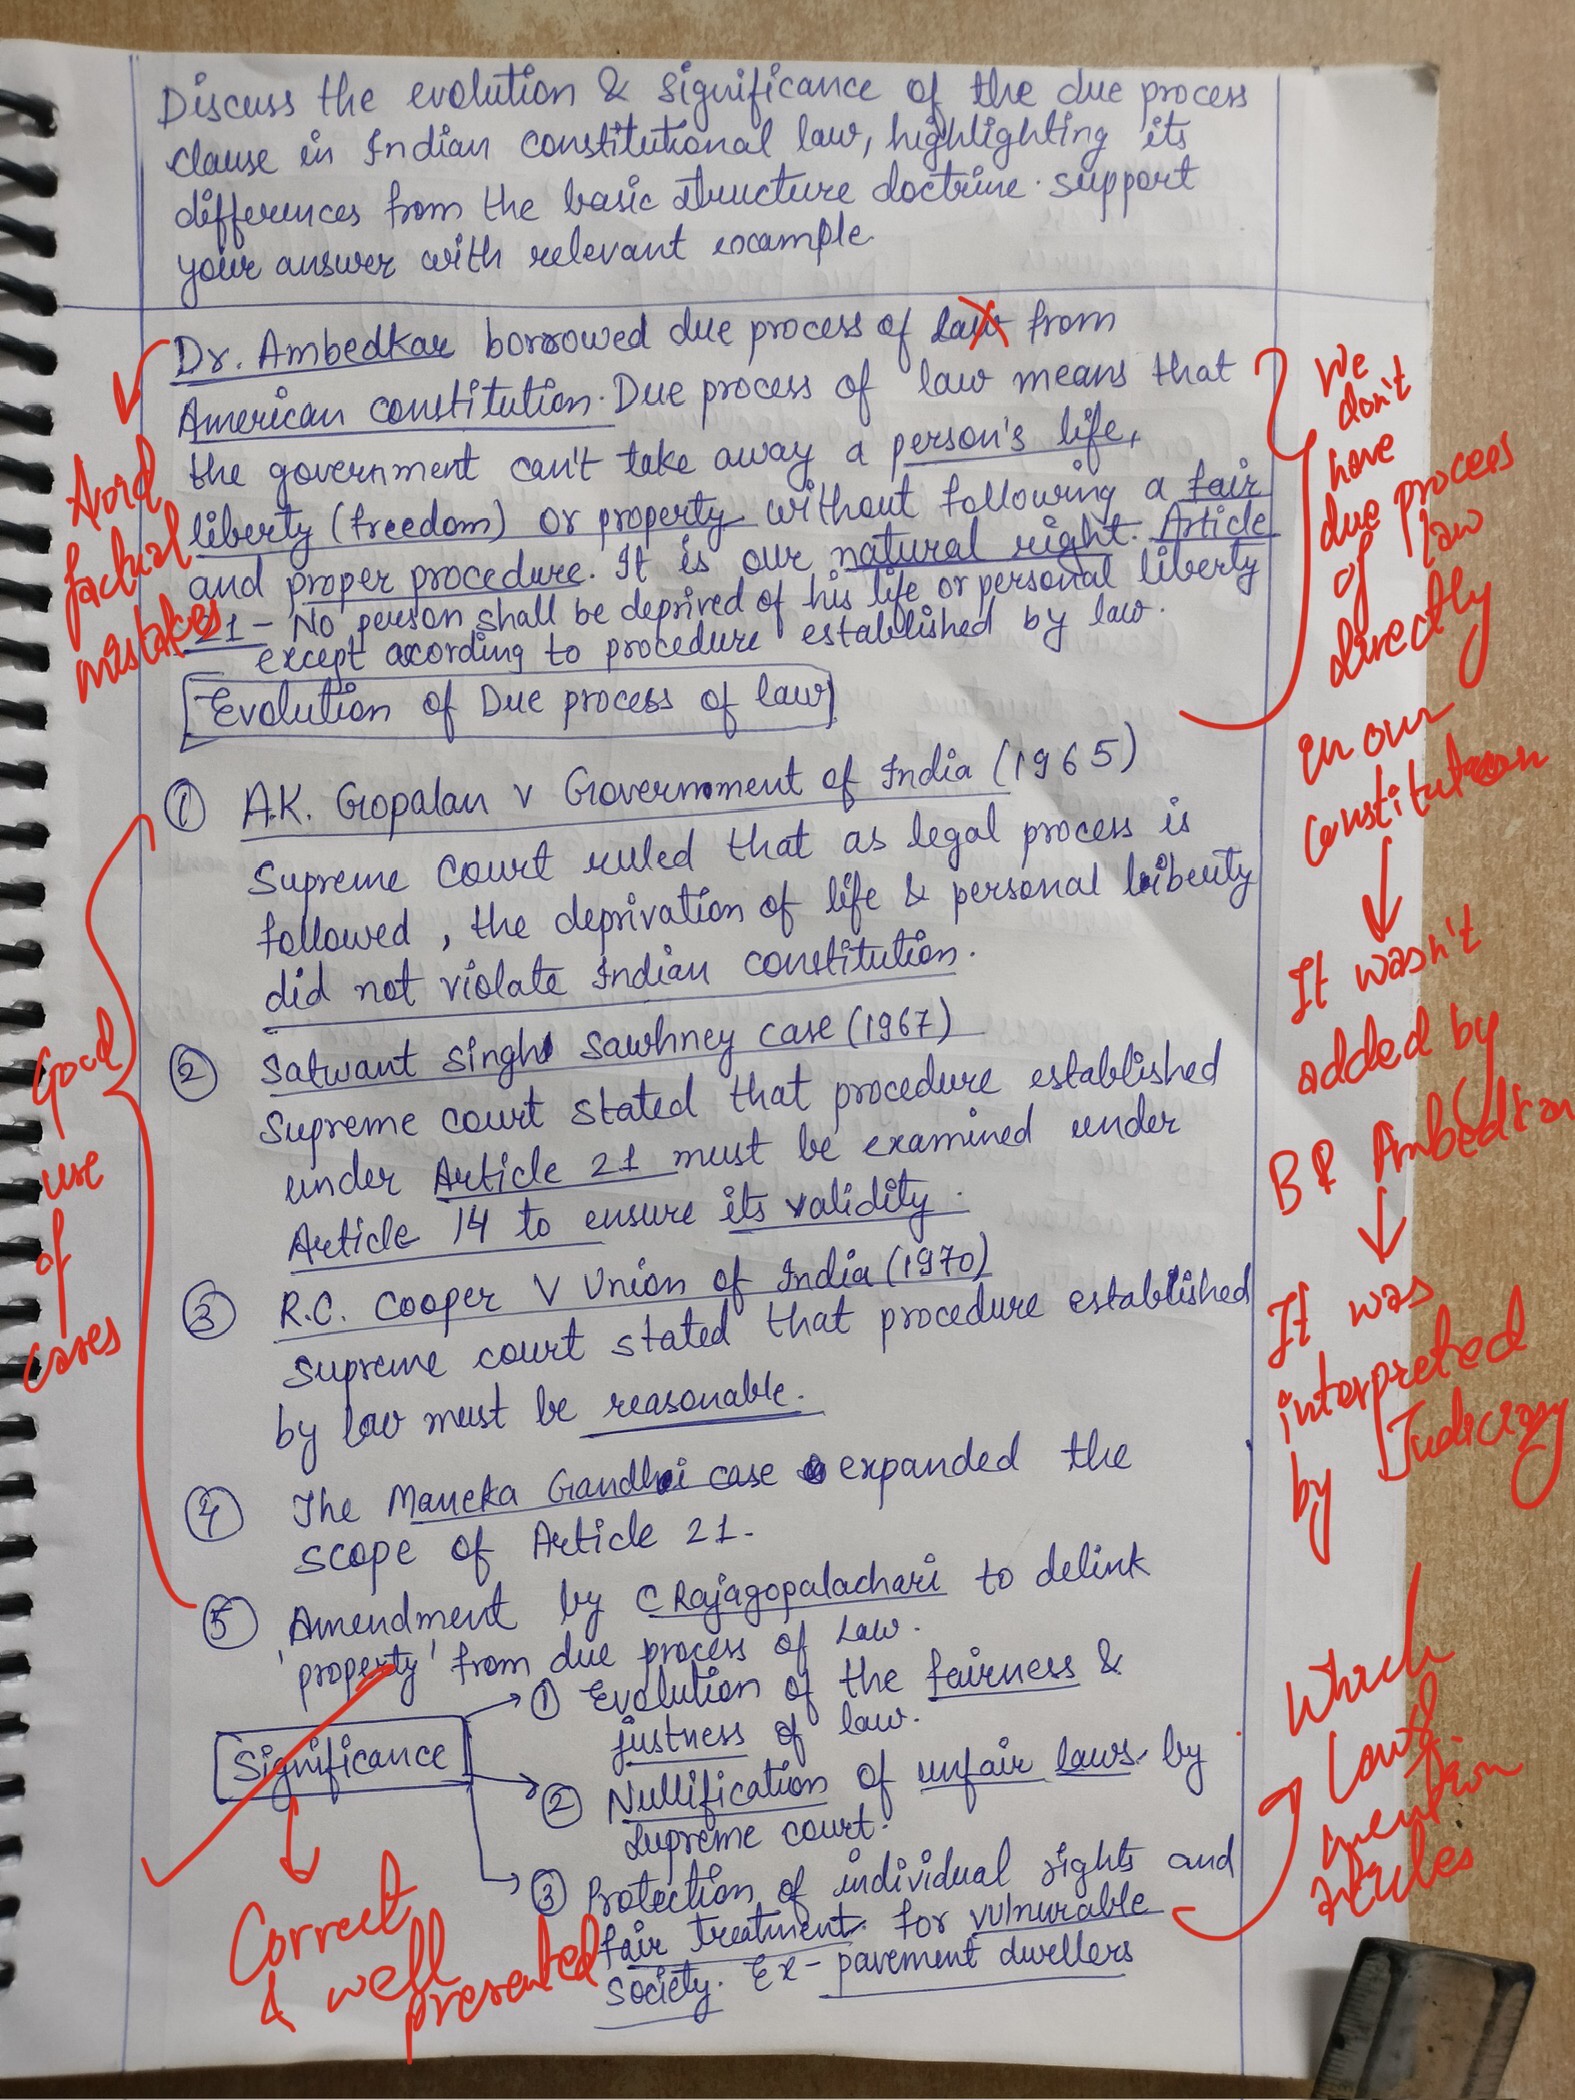 Discuss the evolution & significance of the due process
clause in Indian constitutional law, highlighting its
differences from the basic structure doctrine. support
your answer with relevant example.
Dr. Ambedkar borrowed due process of law from
American constitution. Due process of law means that
the government can't take away a person's life,
liberty (freedom) or property without following a fair
and proper procedure. It is our natural right. Article
21 - No person shall be deprived of his life or personal liberty
except according to procedure established by law.
Evolution of Due process of law
① A.K. Gopalan v Government of India (1965)
Supreme Court ruled that as legal process is
followed, the deprivation of life & personal liberty
did not violate Indian constitution.
② Satwant Singh Sawhney case (1967)
Supreme court stated that procedure established
under Article 21 must be examined under
Article 14 to ensure its validity.
③ R.C. Cooper V Union of India (1970)
Supreme court stated that procedure established
by law must be reasonable.
④ The Maneka Gandhi case expanded the
scope of Article 21.
⑤ Amendment by C Rajagopalachari to delink
'property' from due process of Law.
Significance
① Evolution of the fairness &
justness of law.
② Nullification of unfair laws by
Supreme court.
③ Protection of individual rights and
fair treatment for vulnurable
society. Ex - pavement dwellers
Avoid
factual
mistakes
Good
use
of
cases
Correct
& well
presented
We
don't
have
due process
of law
directly
in our
constitution
It wasn't
added by
B R Ambedkar
It was
interpreted
by Judiciary
Which
Laws
mention
Articles